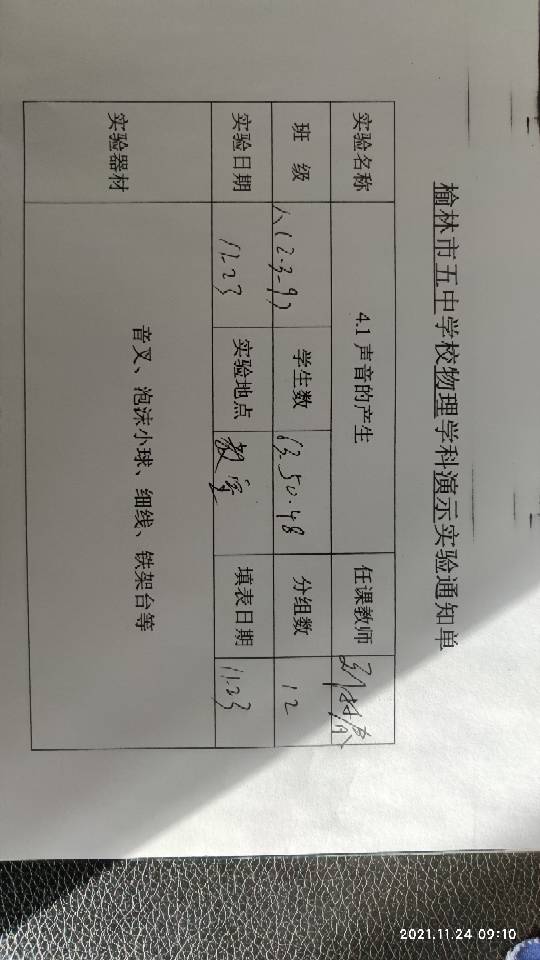 榆林市五中学校物理学科演示实验通知单
实验名称 4.1 声音的产生 任课教师
班 级 八(2.3.9) 学生数 50.48 分组数 12
实验日期 11.23 实验地点 教室 填表日期 11.23
实验器材 音叉、泡沫小球、细线、铁架台等
2021.11.24 09:10